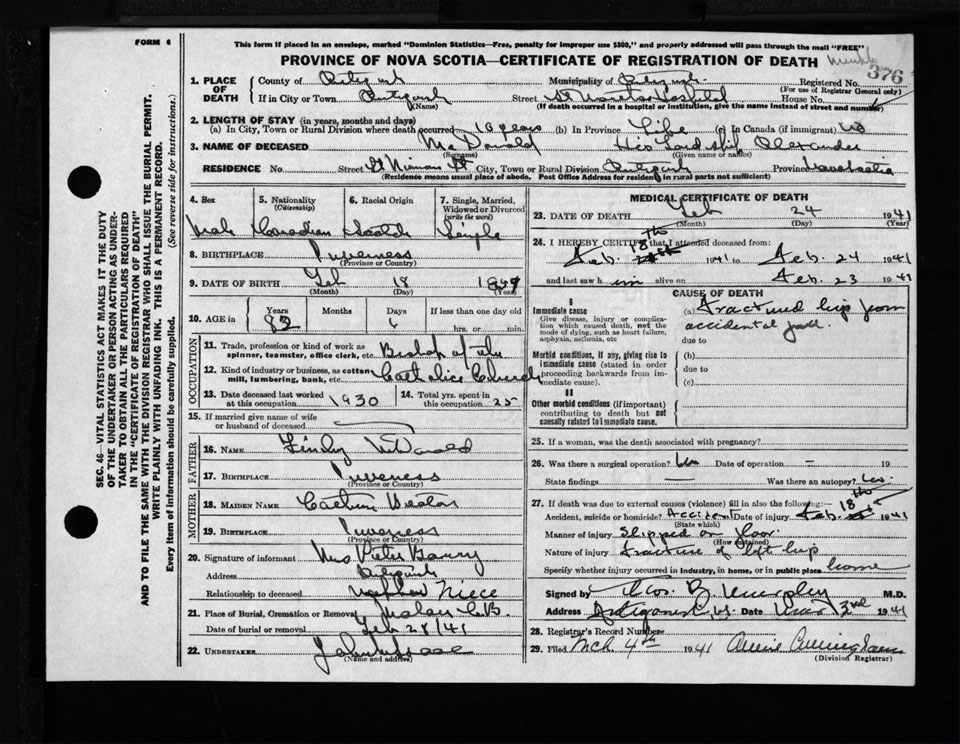 FORM 6
This form if placed in an envelope, marked "Dominion Statistics—Free, penalty for improper use $300," and properly addressed will pass through the mail "FREE"
PROVINCE OF NOVA SCOTIA—CERTIFICATE OF REGISTRATION OF DEATH
376
1. PLACE OF DEATH
County of Antigonish Municipality of Antigonish Registered No.
(For use of Registrar General only)
If in City or Town Antigonish Street St Martha's Hospital House No.
(Name) (If death occurred in a hospital or institution, give the name instead of street and number)
2. LENGTH OF STAY (in years, months and days)
(a) In City, Town or Rural Division where death occurred 10 years (b) In Province Life (c) In Canada (if immigrant)
3. NAME OF DECEASED MacDonald His Lordship Alexander
(Surname) (Given name or names)
RESIDENCE No. Street St Ninian St City, Town or Rural Division Antigonish Province Nova Scotia
(Residence means usual place of abode. Post Office Address for residents in rural parts not sufficient)
4. Sex Male
5. Nationality (Citizenship) Canadian
6. Racial Origin Scotch
7. Single, Married, Widowed or Divorced (write the word) Single
8. BIRTHPLACE Inverness
(Province or Country)
9. DATE OF BIRTH Feb 18
(Month) (Day) (Year)
10. AGE in Years Months Days If less than one day
6 hrs. or min.
OCCUPATION
11. Trade, profession or kind of work as spinner, teamster, office clerk, etc. Bishop of the
12. Kind of industry or business, as cotton mill, lumbering, bank, etc. Catholic Church
13. Date deceased last worked at this occupation 1930
14. Total yrs. spent in this occupation 25
15. If married give name of wife or husband of deceased
FATHER
16. NAME Finlay McDonald
17. BIRTHPLACE Inverness
(Province or Country)
MOTHER
18. MAIDEN NAME
19. BIRTHPLACE Inverness
(Province or Country)
20. Signature of informant Mrs Peter
Address Antigonish
Relationship to deceased Niece
21. Place of Burial, Cremation or Removal Mabou C.B.
Date of burial or removal Feb 28/41
22. UNDERTAKER
(Name and address)
MEDICAL CERTIFICATE OF DEATH
23. DATE OF DEATH Feb 24 1941
(Month) (Day) (Year)
24. I HEREBY CERTIFY that I attended deceased from:
Feb. 18th 1941 to Feb. 24 1941
and last saw him alive on Feb. 23 1941
CAUSE OF DEATH
I
Immediate cause
Give disease, injury or complication which caused death, not the mode of dying, such as heart failure, asphyxia, asthenia, etc.
(a) Fractured hip from accidental fall.
due to
Morbid conditions, if any, giving rise to immediate cause (stated in order proceeding backwards from immediate cause).
(b)
due to
(c)
II
Other morbid conditions (if important) contributing to death but not causally related to immediate cause.
25. If a woman, was the death associated with pregnancy?
26. Was there a surgical operation? No Date of operation — 19
State findings — Was there an autopsy? No.
27. If death was due to external causes (violence) fill in also the following:
Accident, suicide or homicide? Accident Date of injury Feb. 18th 1941
(State which)
Manner of injury Slipped on floor
(How sustained)
Nature of injury Fracture of left hip
Specify whether injury occurred in industry, in home, or in public place home
Signed by Murphy M.D.
Address Antigonish, N.S. Date Mar 3rd 1941
28. Registrar's Record Number
29. Filed Mch 4th 1941 Annie Cunningham
(Division Registrar)
SEC. 46—VITAL STATISTICS ACT MAKES IT THE DUTY OF THE UNDERTAKER OR PERSON ACTING AS UNDERTAKER TO OBTAIN ALL THE PARTICULARS REQUIRED IN THE "CERTIFICATE OF REGISTRATION OF DEATH"
AND TO FILE THE SAME WITH THE DIVISION REGISTRAR WHO SHALL ISSUE THE BURIAL PERMIT.
WRITE PLAINLY WITH UNFADING INK. THIS IS A PERMANENT RECORD.
Every item of information should be carefully supplied. (See reverse side for instructions.)